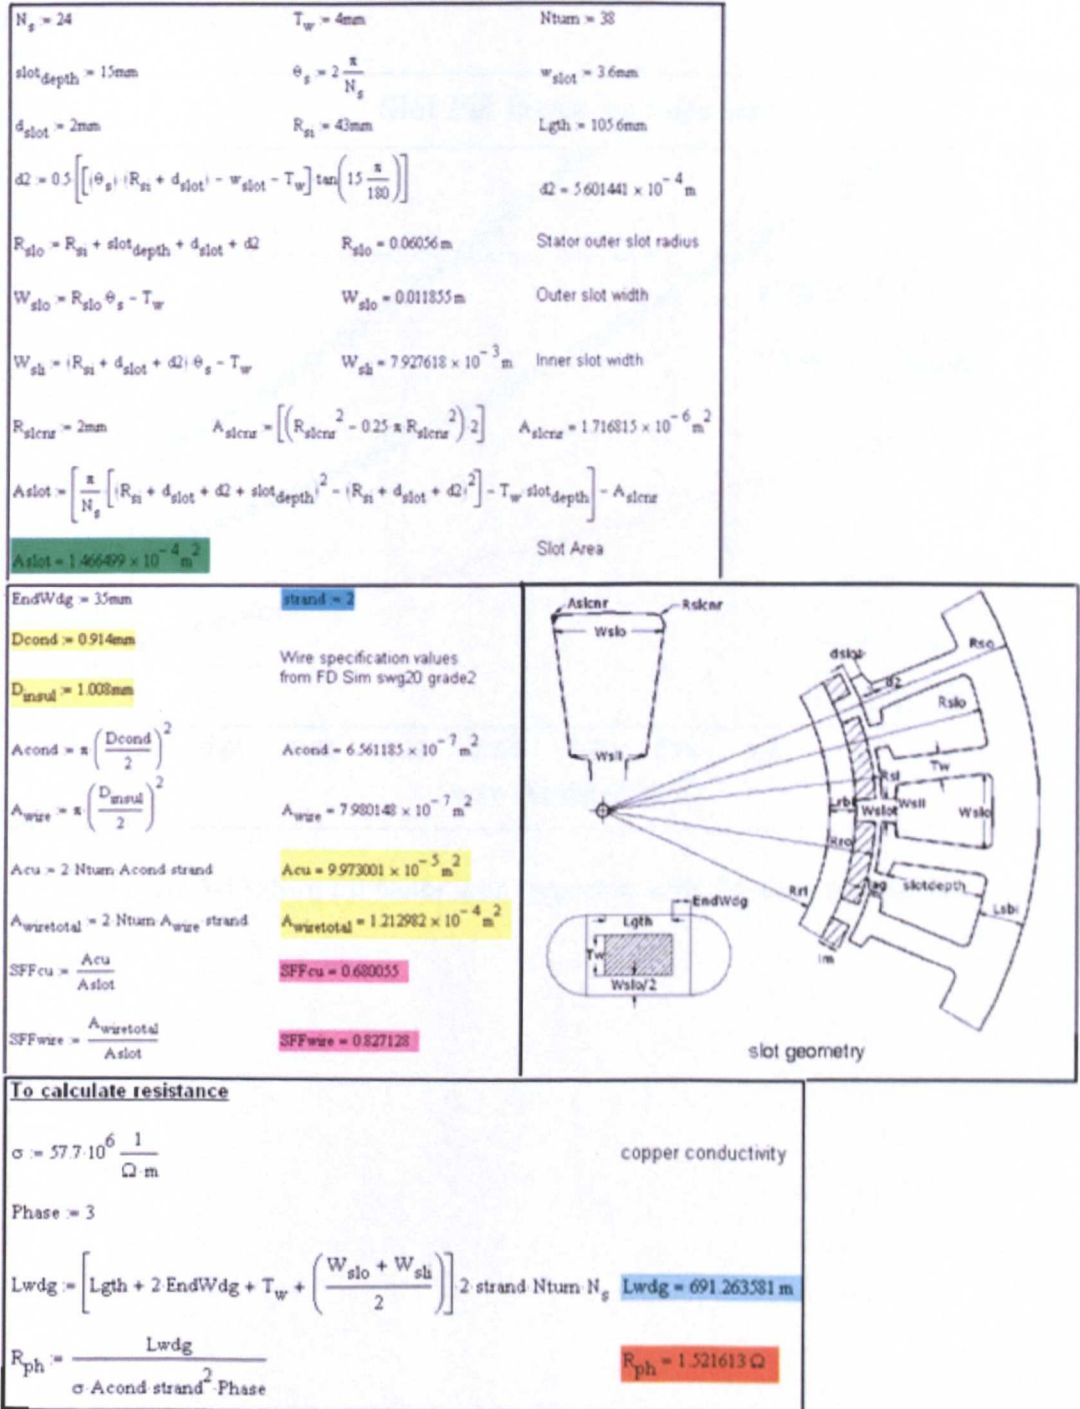 N_s := 24 T_w := 4mm Nturn := 38
slot_depth := 15mm θ_s := 2 π/N_s w_slot := 3.6mm
d_slot := 2mm R_si := 43mm Lgth := 105.6mm
d2 := 0.5 [[(θ_s) (R_si + d_slot) - w_slot - T_w] tan(15 π/180)] d2 = 5.601441 × 10^-4 m
R_slo := R_si + slot_depth + d_slot + d2 R_slo = 0.06056 m Stator outer slot radius
W_slo := R_slo θ_s - T_w W_slo = 0.011855 m Outer slot width
W_sli := (R_si + d_slot + d2) θ_s - T_w W_sli = 7.927618 × 10^-3 m Inner slot width
R_slcnr := 2mm A_slcnr := [(R_slcnr^2 - 0.25 π R_slcnr^2)·2] A_slcnr = 1.716815 × 10^-6 m^2
Aslot := [π/N_s [(R_si + d_slot + d2 + slot_depth)^2 - (R_si + d_slot + d2)^2] - T_w slot_depth] - A_slcnr
Slot Area
Aslot = 1.466499 × 10^-4 m^2
EndWdg := 35mm strand := 2
Dcond := 0.914mm
Wire specification values
from FD Sim swg20 grade2
D_insul := 1.008mm
Acond := π (Dcond/2)^2 Acond = 6.561185 × 10^-7 m^2
A_wire := π (D_insul/2)^2 A_wire = 7.980148 × 10^-7 m^2
Acu := 2 Nturn Acond strand Acu = 9.973001 × 10^-5 m^2
A_wiretotal := 2 Nturn A_wire strand A_wiretotal = 1.212982 × 10^-4 m^2
SFFcu := Acu/Aslot SFFcu = 0.680055
SFFwire := A_wiretotal/Aslot SFFwire = 0.827128
Aslcnr
Rslcnr
Wslo
Wsli
dslot
d2
Rso
Rslo
Tw
Rsi
Lrbi
Wslot
Wsli
Wslo
Rro
Rri
ag
slotdepth
Lsbi
lm
EndWdg
Lgth
Tw
Wslo/2
slot geometry
To calculate resistance
σ := 57.7·10^6 1/(Ω·m) copper conductivity
Phase := 3
Lwdg := [Lgth + 2·EndWdg + T_w + ((W_slo + W_sli)/2)]·2·strand·Nturn·N_s Lwdg = 691.263581 m
R_ph := Lwdg/(σ·Acond·strand^2·Phase) R_ph = 1.521613 Ω